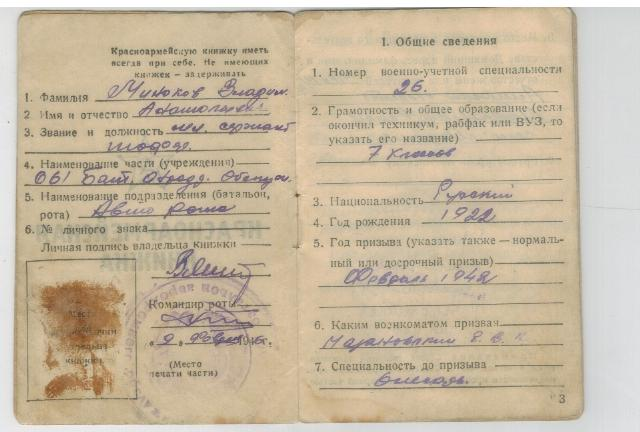 Красноармейскую книжку иметь
всегда при себе. Не имеющих
книжек — задерживать
1. Фамилия Минюков Владим.
2 Имя и отчество
3. Звание и должность мл. сержант
4. Наименование части (учреждения)
061 Бат.
5. Наименование подразделения (батальон,
рота) Авто рота
6. № личного знака
Личная подпись владельца Книжки
Командир роты
(Место
печати части)
1. Общие сведения
1. Номер военно-учетной специальности
26.
2. Грамотность и общее образование (если
окончил техникум, рабфак или ВУЗ, то
указать его название)
7 классов
3. Национальность Русский
4. Год рождения 1922
5. Год призыва (указать также — нормаль-
ный или досрочный призыв)
Февраль 1942
6. Каким военкоматом призван
7. Специальность до призыва
Слесарь.
3